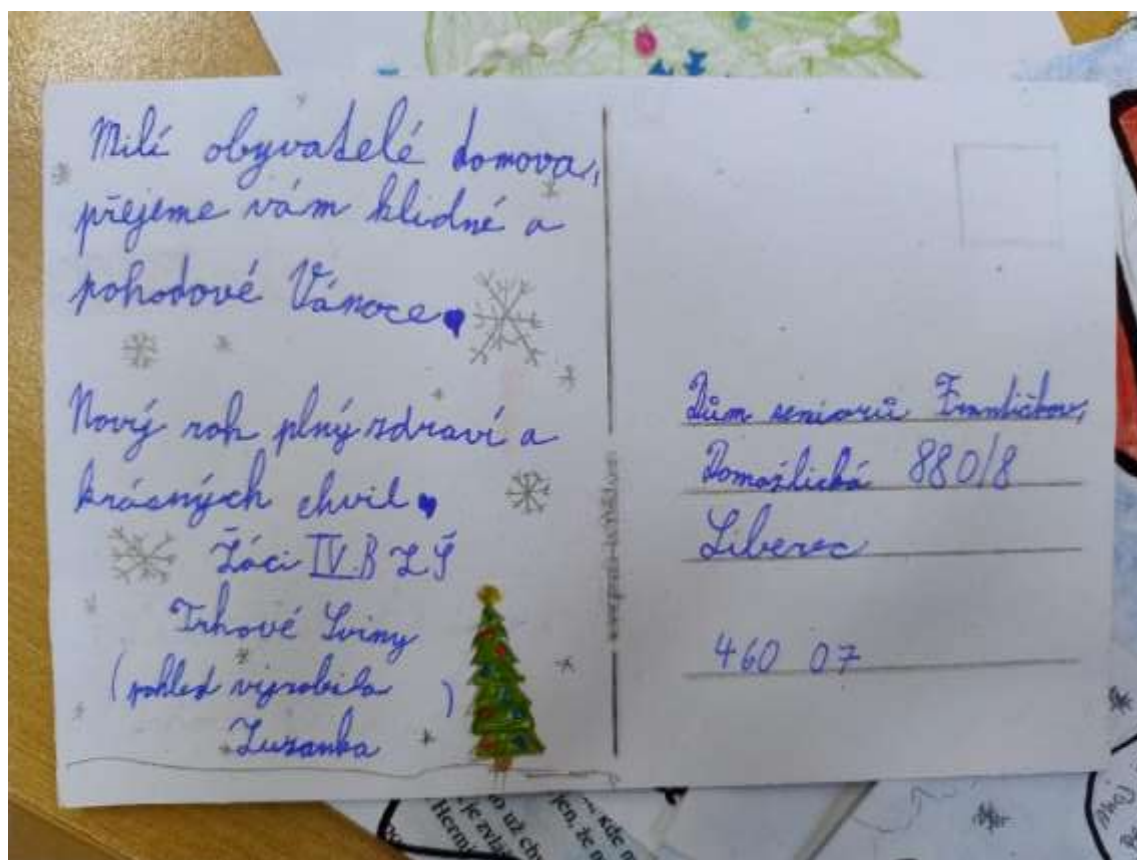 Milí obyvatelé domova,
přejeme vám klidné a
pohodové Vánoce
Nový rok plný zdraví a
krásných chvil
Žáci IV.B ZŠ
Trhové Sviny
(pohled vyrobila
Zuzanka)
Dům seniorů Františkov,
Domažlická 880/8
Liberec
460 07